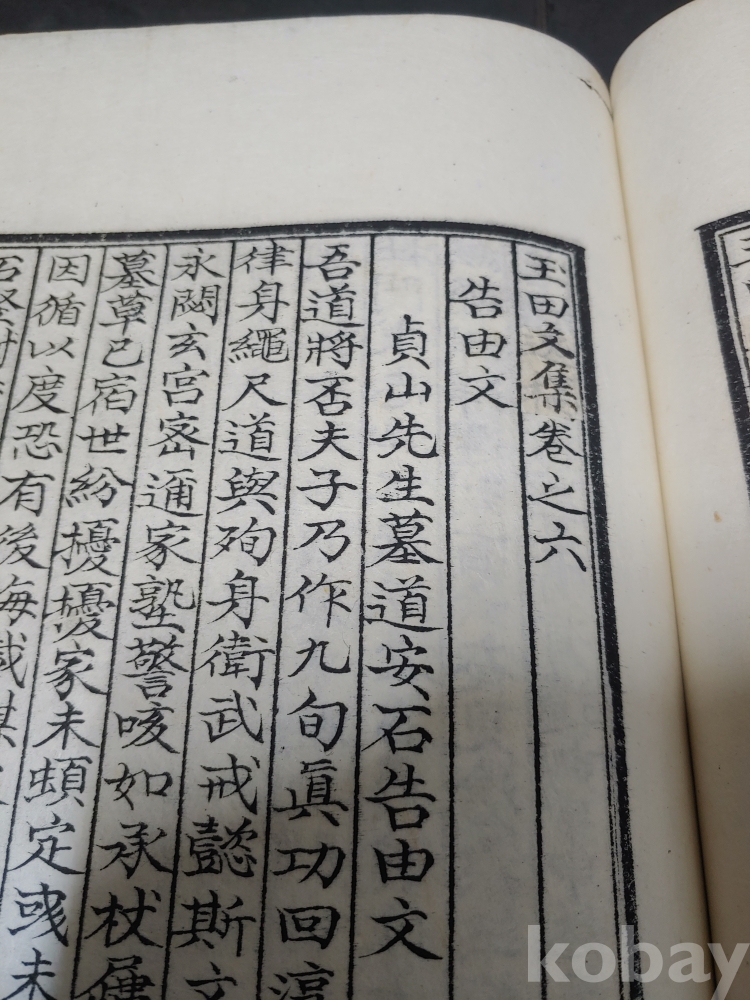 玉田文集卷之六
告由文
貞山先生墓道安石告由文
吾道將否夫子乃作九旬眞功回淳
律身繩尺道與殉身衛武戒懿斯文
永閟玄宮密邇家塾警咳如承杖屨
墓草已宿世紛擾擾家未頻定或未
因循以度恐有後悔
kobay